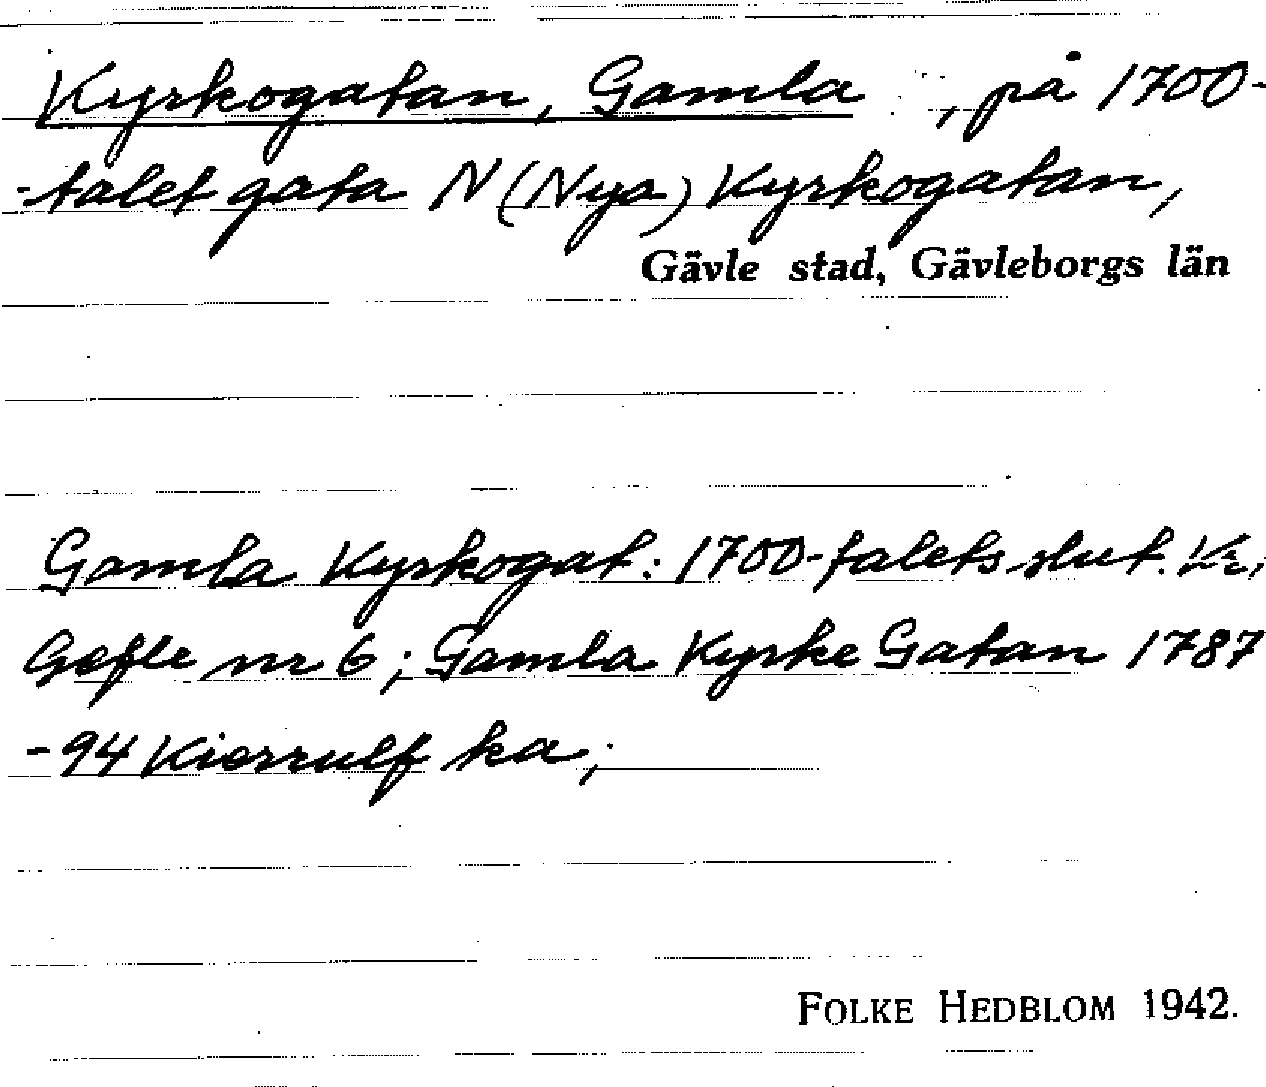 Kyrkogatan, Gamla , på 1700-
-talet gata N (Nya) Kyrkogatan,
Gävle stad, Gävleborgs län
Gamla Kyrkogat: 1700-talets slut.
Gefle nr 6; Gamla Kyrke Gatan 1787
-94 Kierrulf ka;
FOLKE HEDBLOM 1942.